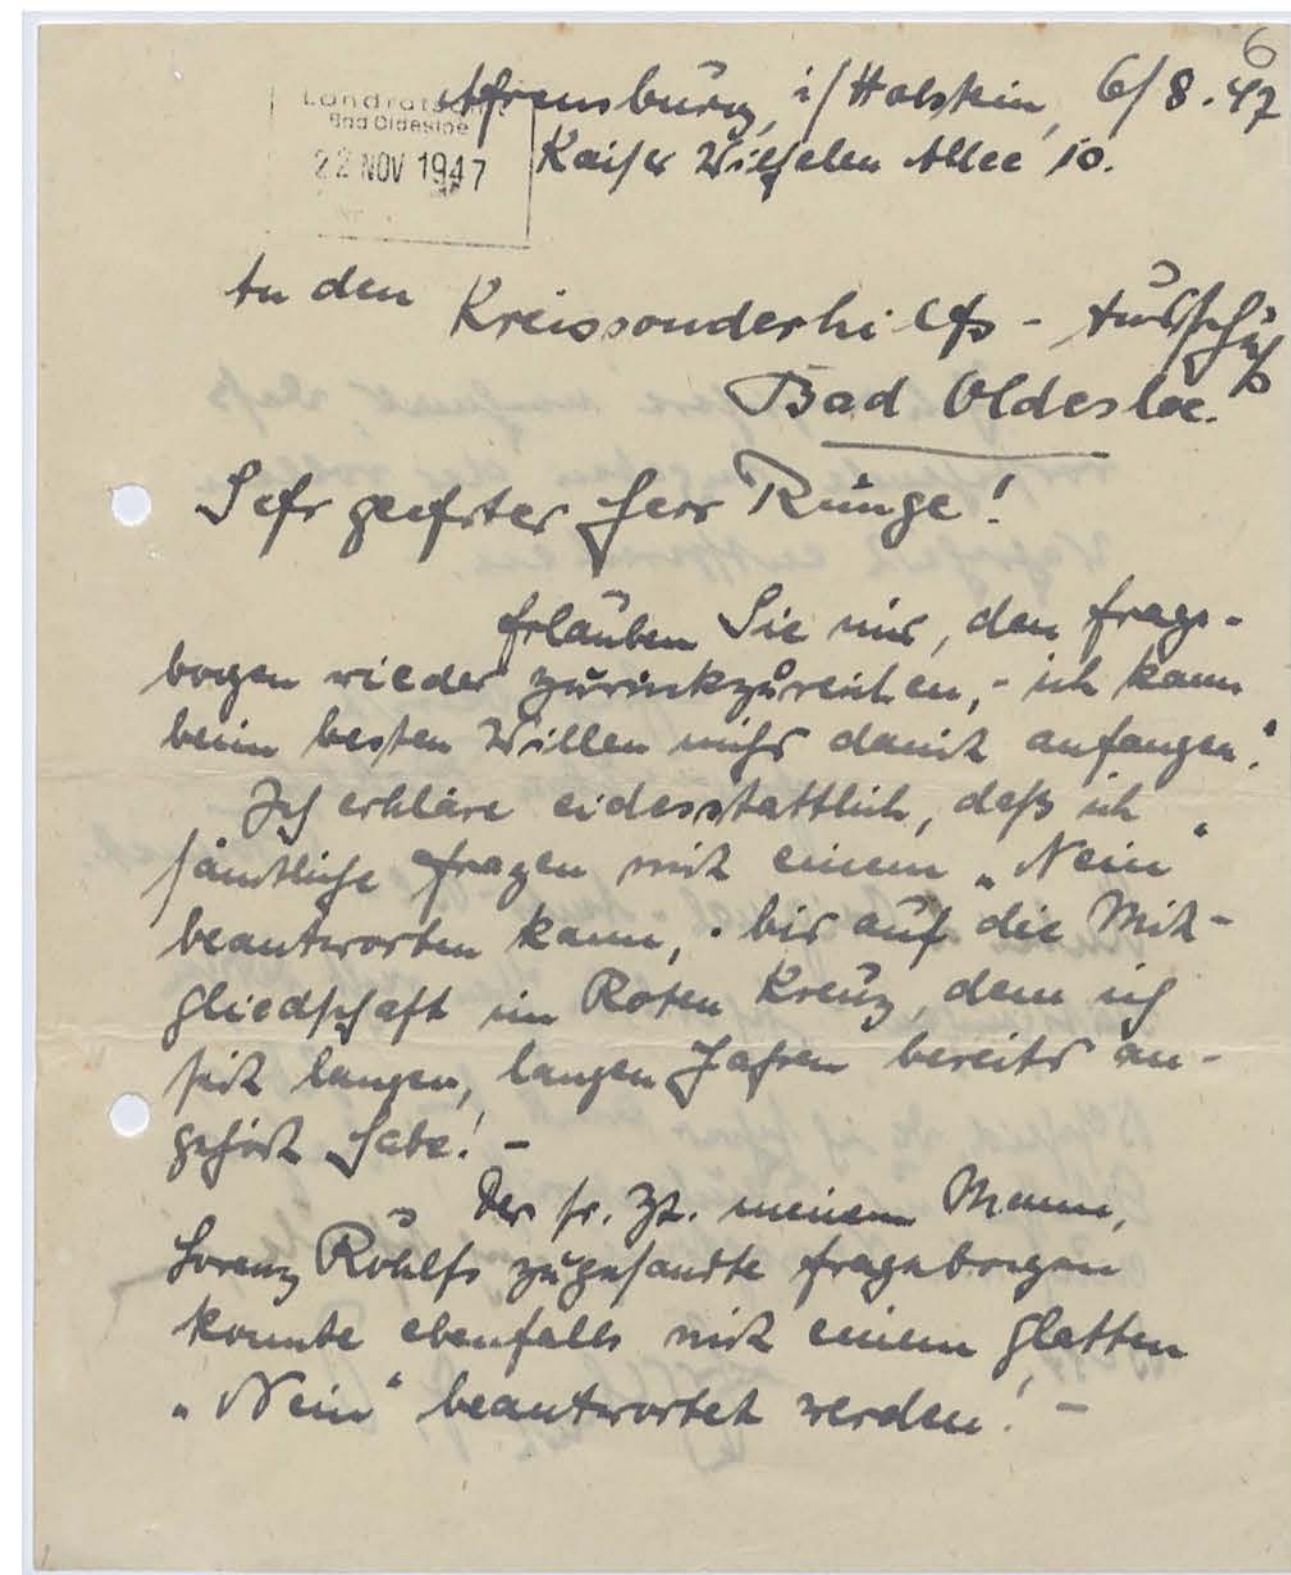 6
Ahrensburg, i/Holstein, 6/8.47
Landratsamt
Bad Oldesloe
22 NOV 1947
Kaiser Wilhelm Allee 10.
An den Kreissonderhilfs-Ausschuß
Bad Oldesloe.
Sehr geehrter Herr Runge!
Erlauben Sie mir, den Frage-
bogen wieder zurückzureichen,- ich kann
beim besten Willen nichts damit anfangen!
Ich erkläre eidesstattlich, daß ich
sämtliche Fragen mit einem „Nein“
beantworten kann, - bis auf die Mit-
gliedschaft im Roten Kreuz, dem ich
seit langen, langen Jahren bereits an-
gehört habe! -
Der sr. Zt. meinem Manne,
Lorenz Rohlfs zugesandte Fragebogen
konnte ebenfalls mit einem glatten
„Nein“ beantwortet werden! -